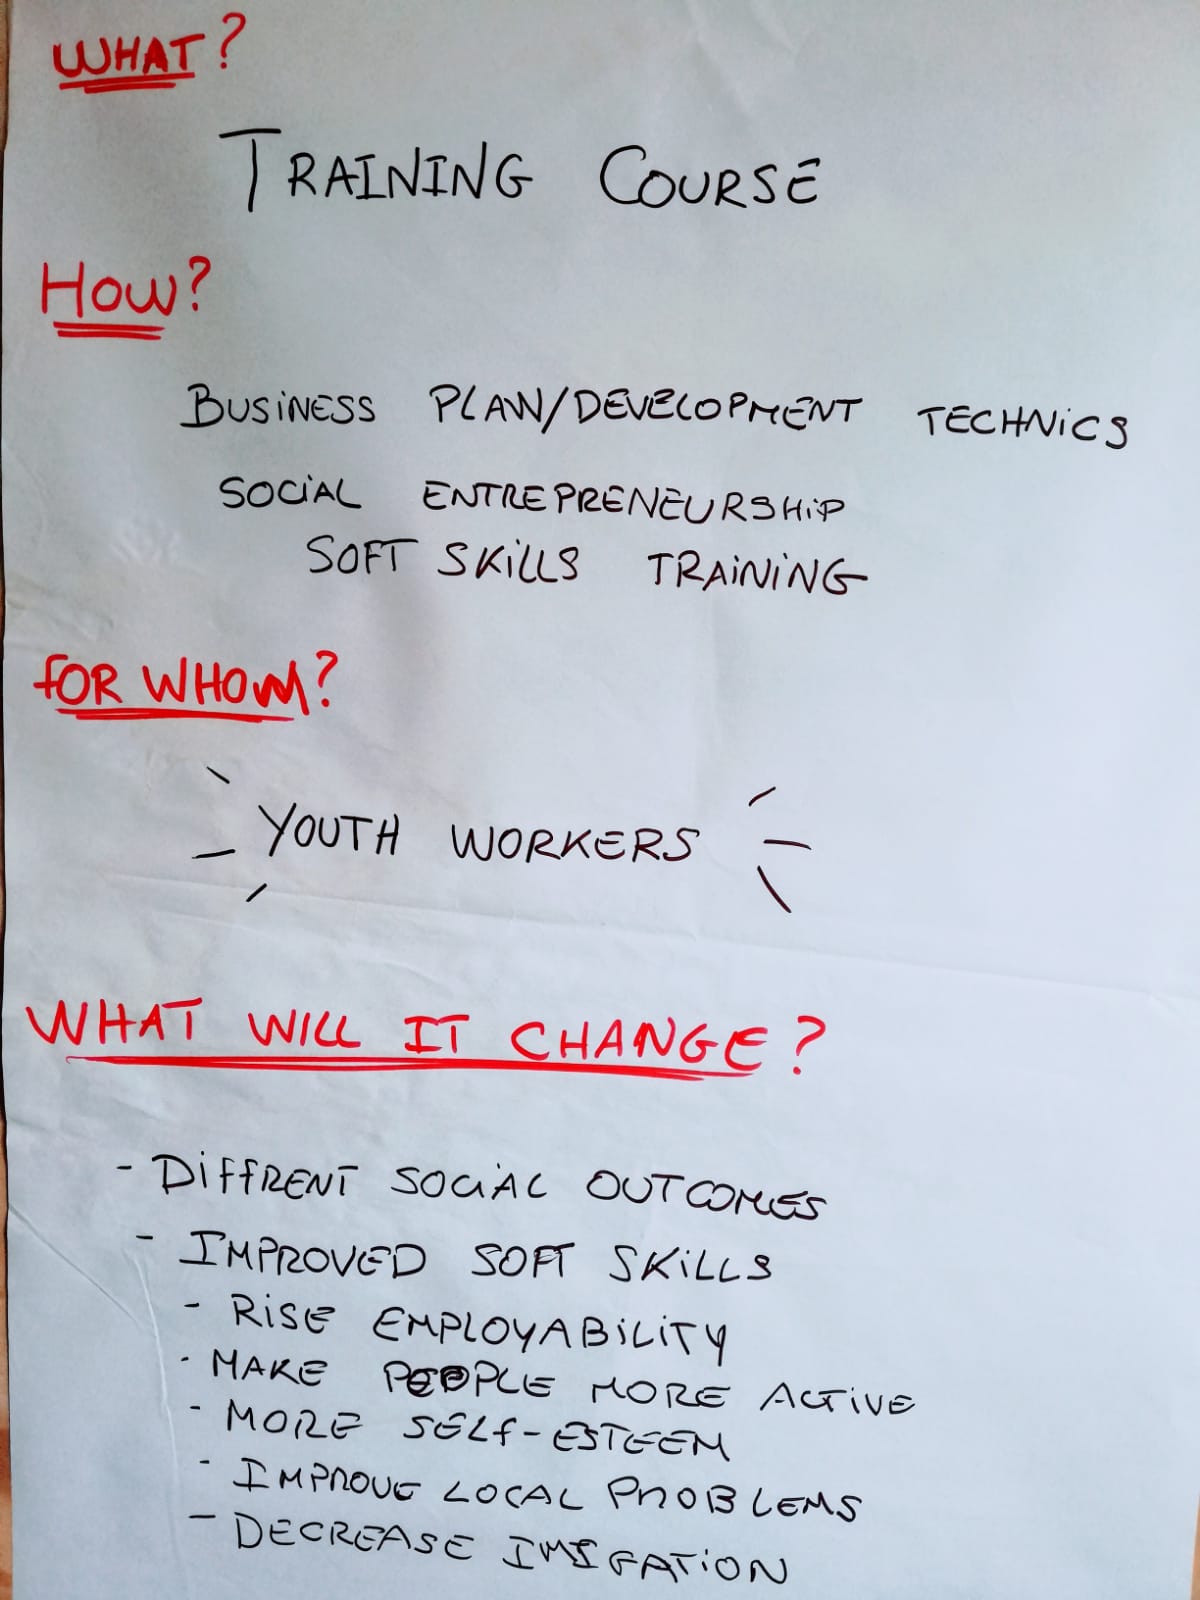 WHAT?
TRAINING COURSE
HOW?
BUSINESS PLAN/DEVELOPMENT TECHNICS
SOCIAL ENTREPRENEURSHIP
SOFT SKILLS TRAINING
FOR WHOM?
YOUTH WORKERS
WHAT WILL IT CHANGE?
- DIFFRENT SOCIAL OUTCOMES
- IMPROVED SOFT SKILLS
- RISE EMPLOYABILITY
- MAKE PEOPLE MORE ACTIVE
- MORE SELF-ESTEEM
- IMPROVE LOCAL PROBLEMS
- DECREASE IMIGATION